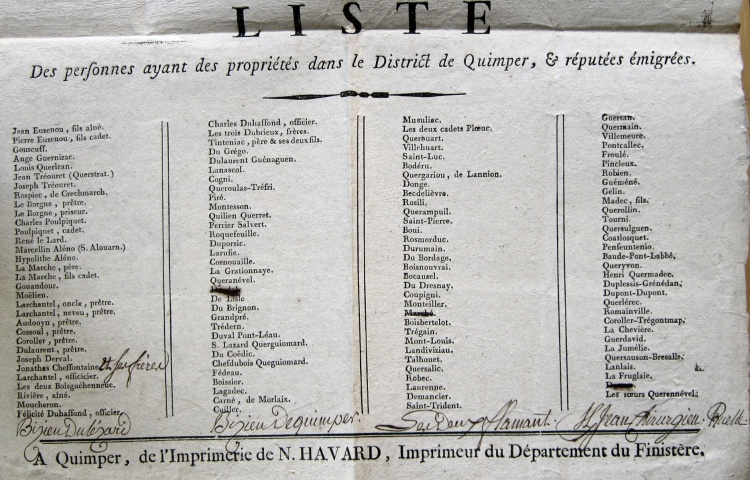 LISTE
Des personnes ayant des propriétés dans le District de Quimper, & réputées émigrées.
Jean Euzenou, fils aîné.
Pierre Euzenou, fils cadet.
Gouscuff.
Ange Guernizac.
Louis Querlean.
Jean Tréouret (Querstrat.)
Joseph Tréouret.
Rospiec, de Crechmarch.
Le Borgne, prêtre.
Le Borgne, priseur.
Charles Poulpiquet.
Poulpiquet, cadet.
René le Lard.
Marcellin Aléno (S. Alouarn.)
Hypolithe Aléno.
La Marche, père.
La Marche, fils cadet.
Gouandour.
Moëlien.
Larchantel, oncle, prêtre.
Larchantel, neveu, prêtre.
Audouyn, prêtre.
Cossoul, prêtre.
Coroller, prêtre.
Dulaurent, prêtre.
Joseph Derval.
Jonathas Cheffontaine & ses frères
Larchantel, officier.
Les deux Boisguéhenneuc.
Rivière, aîné.
Moucheron.
Félicité Duhaffond, officier.
Charles Duhaffond, officier.
Les trois Dubrieux, frères.
Tinteniac, père & ses deux fils.
Du Grégo.
Dulaurent Guénaguen.
Lanascol.
Cogni.
Queroulas-Tréfri.
Piré.
Montesson.
Quilien Querret.
Perrier Salvert.
Roquefeuille.
Duporsic.
Larufie.
Cornouaille.
La Grationnaye.
Queranével.
De Lisle
Du Brignon.
Grandpré.
Trédern.
Duval Pont-Léau.
S. Lazard Querguiomard.
Du Coëdic.
Chefdubois Queguiomard.
Fédeau.
Boissier.
Lagadec.
Carné, de Morlaix.
Cuiller.
Musuliac.
Les deux cadets Plœuc.
Querouart.
Villehuart.
Saint-Luc.
Bodéru.
Quergariou, de Lannion.
Donge.
Becdelièvre.
Rosili.
Querampuil.
Saint-Pierre.
Boui.
Rosmorduc.
Durumain.
Du Bordage.
Boisnouvrai.
Bocausel.
Du Dresnay.
Coupigni.
Monteiller.
Marché.
Boisbertelot.
Trégain.
Mont-Louis.
Landiviziau.
Talhouet.
Quersalic.
Robec.
Laurenne.
Demancier.
Saint-Trident.
Guersan.
Quermain.
Villemeure.
Pontcallec.
Froulé.
Pincleux.
Robien.
Guéméné.
Gelin.
Madec, fils.
Querollin.
Tourni.
Quersulguen.
Coatlosquet.
Penfeuntenio.
Baude-Pont-Labbé.
Queryvon.
Henri Quermadec.
Duplessis-Grénédan.
Dupont-Dupont.
Querlérec.
Romainville.
Coroller-Trégontmap.
La Chevière.
Guerdavid.
La Jumélie.
Quersauzon-Bresalle.
Lanlais.
La Fruglaie.
Les sœurs Querennével.
Bizien Dulézard
Bizien Dequimper.
Les Deux flamant.
St Jean chirurgien.
A Quimper, de l'Imprimerie de N. HAVARD, Imprimeur du Département du Finistère.